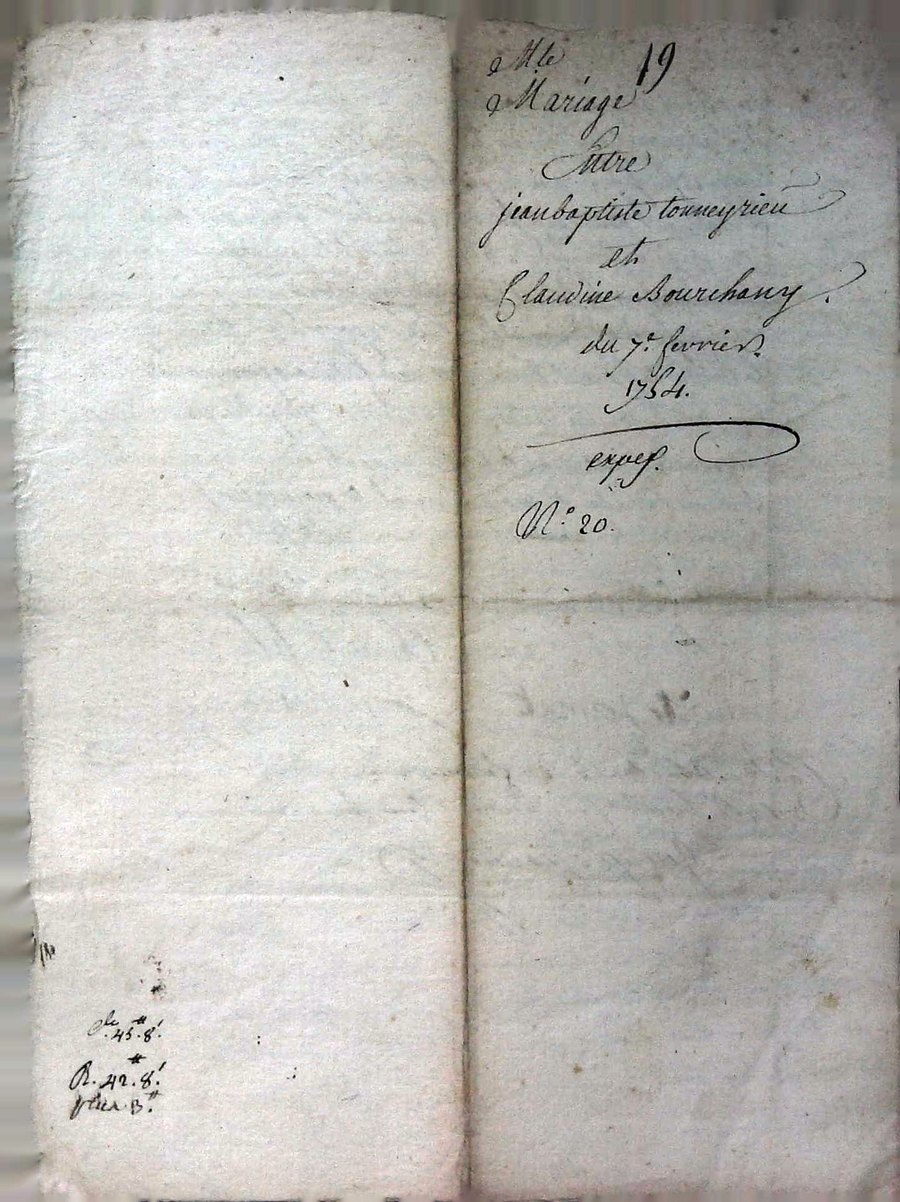 Mte 19
Mariage
Entre
jean baptiste tonneyrieu
et
Claudine Bourchany.
du 7e. fevrier.
1754.
exped.
N.° 20.
de 45.# 8.s
R. 42.# 8.s
plus 3.#